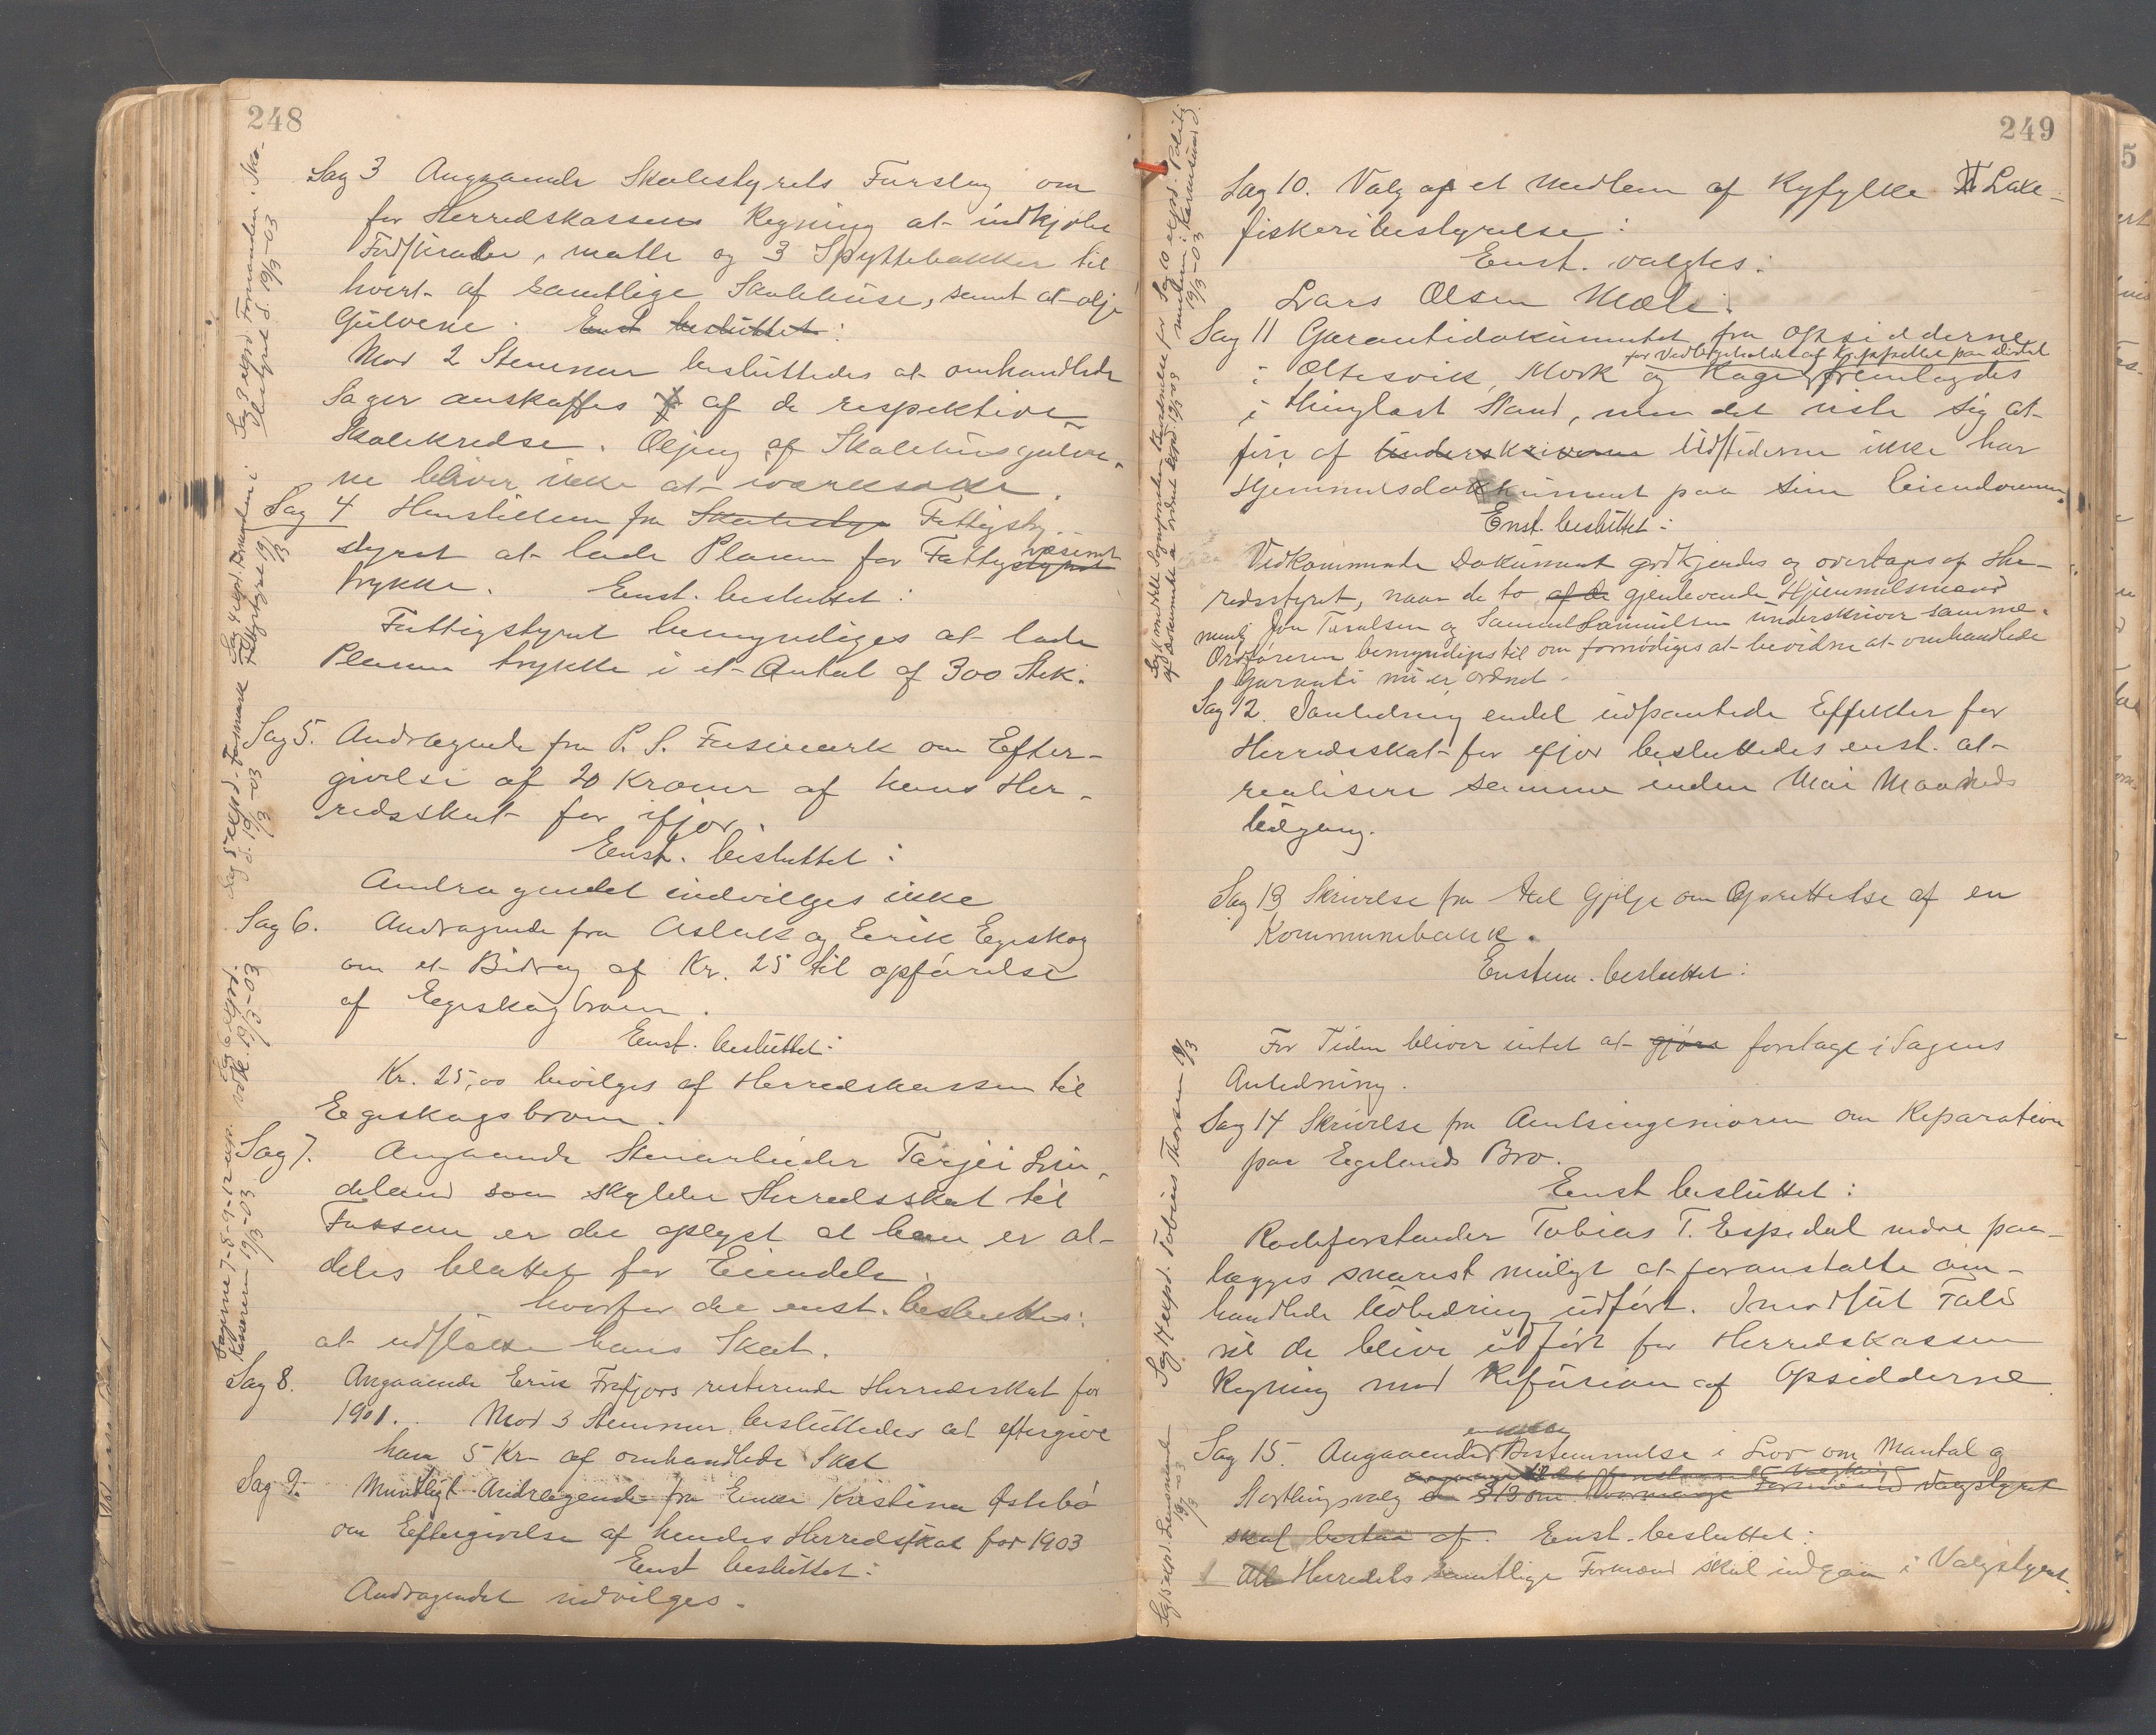 248
Sag 3 Angaaende Skolestyrets Forslag om
for Herredskassens Regning at indkjøbe
matter og 3 Spyttebakker til
hvert af samtlige Skolehuse, samt at olje
Gulvene. Enst besluttet:
Mod 2 Stemmer besluttedes at omhandlede
Sager anskaffes af de respektive
Skolekredse. Oljing af Skolehusgulve-
ne bliver ikke at iværksætte.
Sag 4 Henstillen fra Skolestyr Fattigsty-
styret at lade Planen for Fattigvæsenet
trykke. Enst. besluttet:
Fattigstyret bemyndiges at lade
Planen trykke i et Antal af 300 Stk.
Sag 5. Andragende fra P. S. Fusmark om Efter-
givelse af 20 Kroner af hans Her-
redsskat for ifjor.
Enst. besluttet:
Andragendet indvilges ikke
Sag 6. Andragende fra Aslak og Eirik Egeskog
om et Bidrag af Kr. 25 til opførelse
af Egeskogbroen.
Enst. besluttet:
Kr. 25,00 bevilges af Herredskassen til
Egeskogsbroen.
Sag 7. Angaaende Stenarbeider Tarjei Lin-
deland som skylder Herredsskat til
Fossan er det oplyst at han er al-
deles blottet for Eiendele.
hvorfor det enst. besluttes:
at udslette hans Skat.
Sag 8. Angaaende Erik Frafjors resterende Herredsskat for
1901. Mod 3 Stemmer besluttedes at eftergive
ham 5 Kr af omhandlede Skat
Sag 9. Mundtligt Andragende fra Enke Kristina Østebø
om Eftergivelse af hendes Herredsskat for 1903
Enst besluttet:
Andragendet indvilges.
Sag 3 expd Formanden i Sko-
lestyret d. 19/3-03
Sag 4 expd. Formanden i
Fattigstyret 19/3
Sag 5 expd. Fusmark
d. 19/3-03
Sag 6 expd.
19/3-03
Sagerne 7-8-9-12 exp.
Kasseren 19/3-03
249
Sag 10. Valg af et Medlem af Ryfylke II Laxe-
fiskeribestyrelse:
Enst. valgtes:
Lars Olsen Mæle.
Sag 11 Garantidokumentet fra Opsidderne
for Vedligeholdet af
i Oltesvik, Mork og Rage fremlagdes
i thinglæst Stand, men det viste sig at
fire af Underskriverne Udstederne ikke har
Hjemmelsdokkument paa sine Eiendomme.
Enst. besluttet:
Vedkommende Dokument godkjendes og overtages af Her-
redsstyret, naar de to af de gjenlevende Hjemmelsmænd
nemlig Jon Taralsen og Samuel Samuelsen underskriver samme.
Ordføreren bemyndiges til om fornødiges at bevidne at omhandlede
Garanti nu er ordnet.
Sag 12. I anledning endel udpantede Effekter for
Herredsskat for ifjor besluttedes enst. at
realisere samme inden Mai Maaneds
Udgang.
Sag 13 Skrivelse fra Axel Gjilje om Oprettelse af en
Kommunebank.
Enstem. besluttet:
For Tiden bliver intet at gjøre foretage i Sagens
Anledning.
Sag 14 Skrivelse fra Amtsingeniøren om Reparation
paa Egelands Bro.
Enst besluttet:
Rodeforstander Tobias T. Espedal nedre paa-
lægges snarest muligt at foranstalte om-
handlede Udbedring udført. I modsat Fald
vil de blive udført for Herredskassen
Regning mod Refusion af Opsidderne.
Sag 15. Angaaende Bestemmelse i Lov om Mantal og
Storthingsvalg Valgstyret
skal bestaa af. Enst. besluttet:
Herredets samtlige Formænd skal indgaa i Valgstyret.
19/3-03
Sag 14 expd. Tobias Thorsen 19/3
Sag 15 expd. Lensmanden
19/3-03